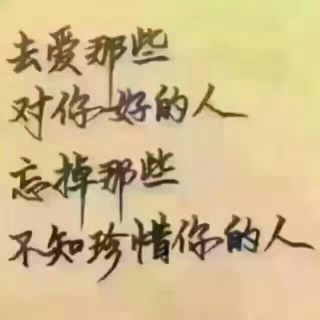 去爱那些
对你好的人
忘掉那些
不知珍惜你的人